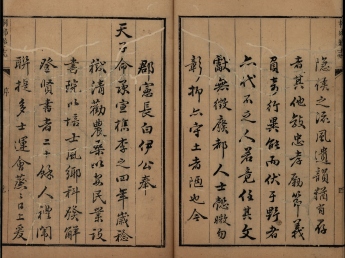 之流風遺韻猶有存
者其他敘忠孝勵節義
負奇行異能而伏于野者
代不乏人若竟任其文
獻無徵邦人士勿
彰抑守土者也今
郡憲長白伊公奉
天子命承宣檇李之四年歲稔
獄清勸農桑以安民業設
書院以培士風鄉科發解
登賢書者二十餘人禮闈
聯捷多士運會蒸蒸日上爰